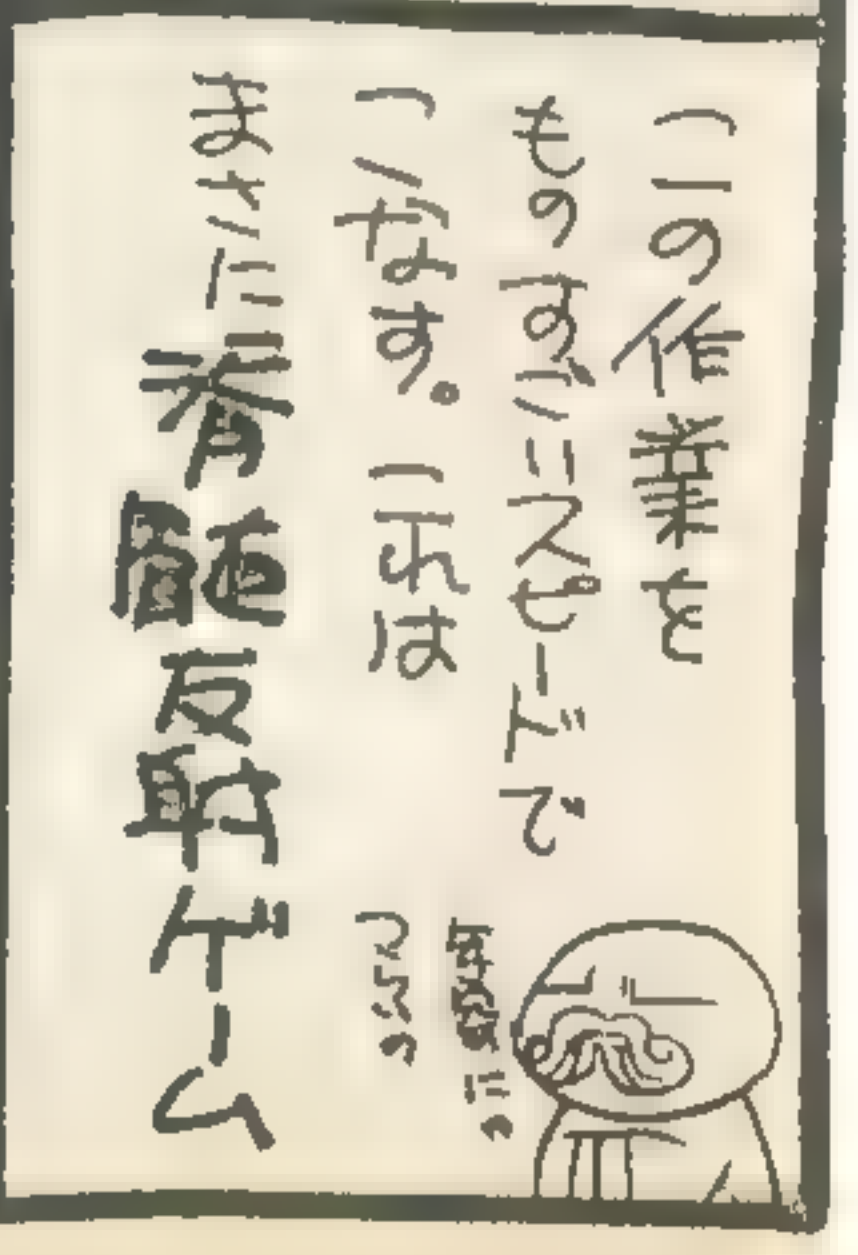 この作業を
ものすごいスピードで
こなす。これは
まさに脊髄反射ゲーム
つらい。